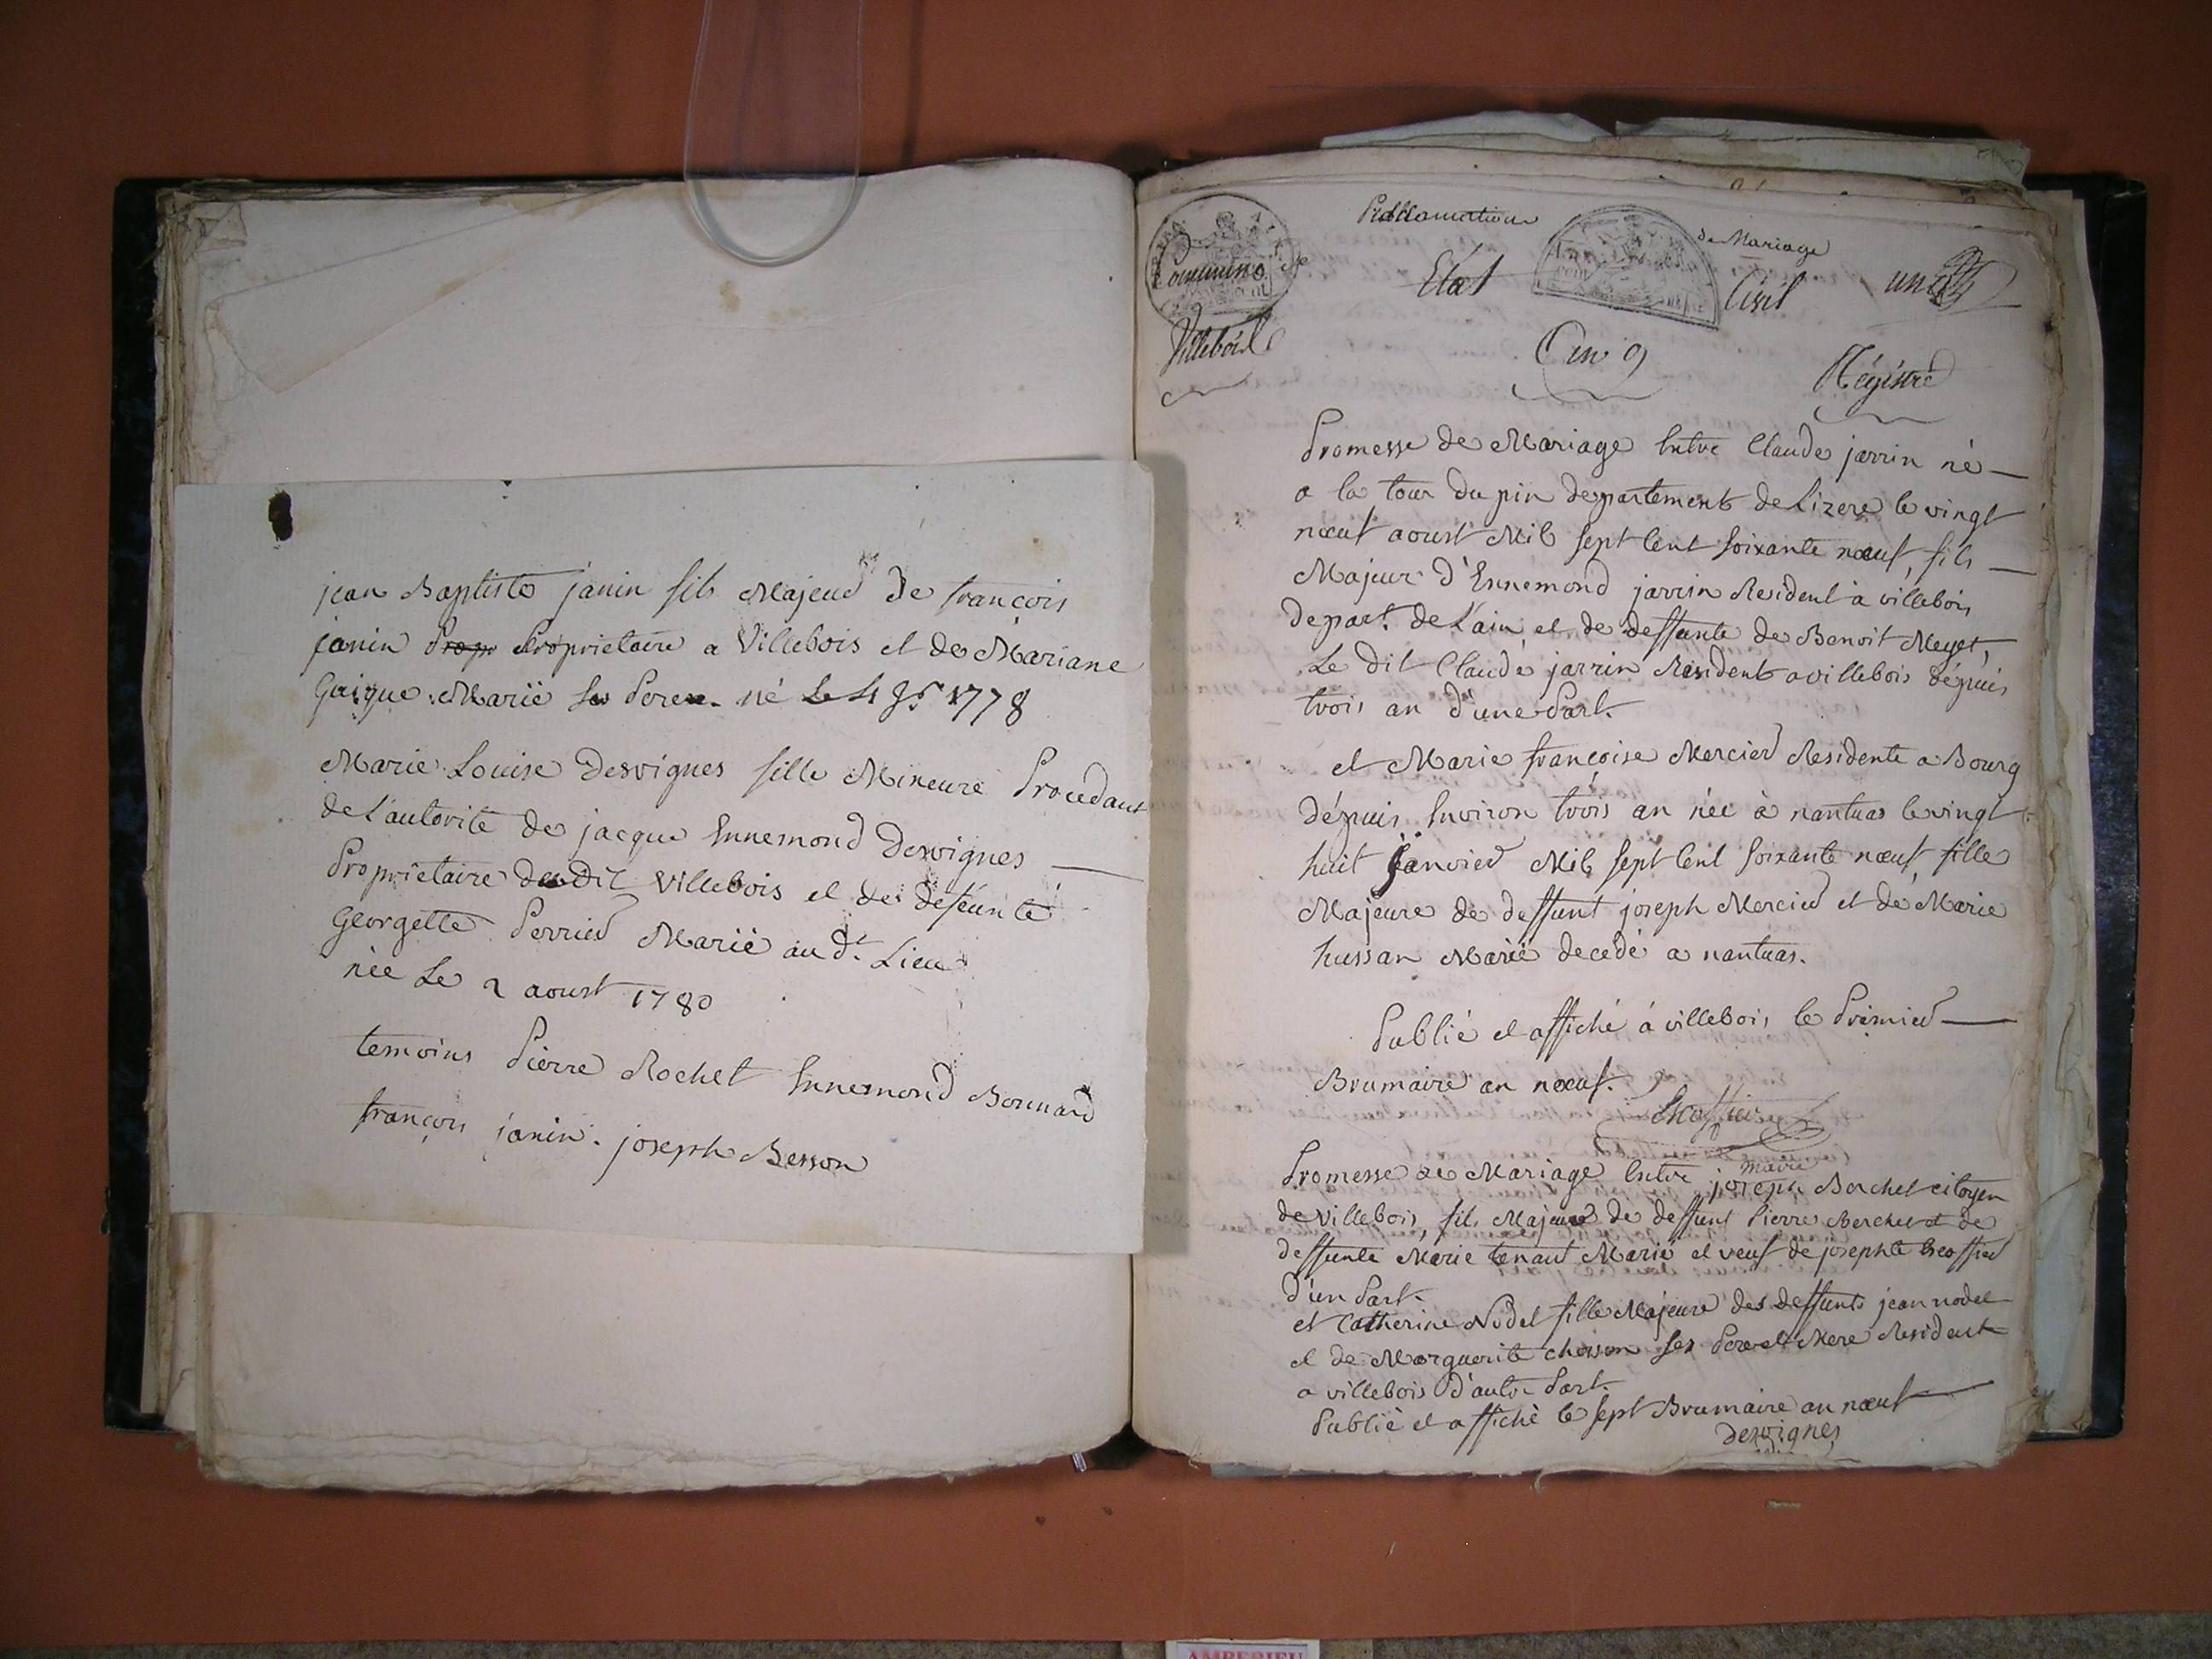 jean Baptiste janin fils Majeur de françois
janin Propr Proprietaire a Villebois et de Mariane
Guigue Marië né Le 4 1778
Marie Louise Desvignes fille Mineure Procedant
de L'autorité de jacque Ennemond Desvignes
Proprietaire dudit Villebois et de defeunte
Georgette Perrier Marië au dt. Lieu
née Le 2 aoust 1780
temoins Pierre Rochet Ennemond Bonnard
françois janin. joseph Besson
Publication de Mariage
Commune de État Civil un
Villebois
an 9
Régistre
Promesse de Mariage Entre Claude jarrin né
a la tour du pin departement de Lizere le vingt
nœuf aoust Mil sept Cent soixante nœuf, fils
Majeur d'Ennemond jarrin Resident à villebois
depart. de L'ain et de deffunte de Benoit Meyet,
Le dit Claude jarrin Resident a villebois dépuis
trois an d'une Part.
et Marie françoise Mercier Residente a Bourg
dépuis Environ trois an née à nantuas le vingt
huit janvier Mil sept Cent soixante nœuf fille
Majeure de deffunt joseph Mercier et de Marie
hussan Marië decedé a nantuas.
Publié et affiché à villebois le Prèmier
Brumaire an nœuf.
maire
Promesse de Mariage Entre joseph Berchet citoyen
de villebois, fils Majeur de deffunt Pierre Berchet et de
deffunte Marie tenant Marië et veuf de josephte
d'un Part.
et Catherine Nodet fille Majeure des deffunts jean nodet
et de Marguerite choison ses Pere et Mere Resident
a villebois d'autre Part.
Publié et affiché le sept Brumaire an nœuf
desvignes
AMBERIEU